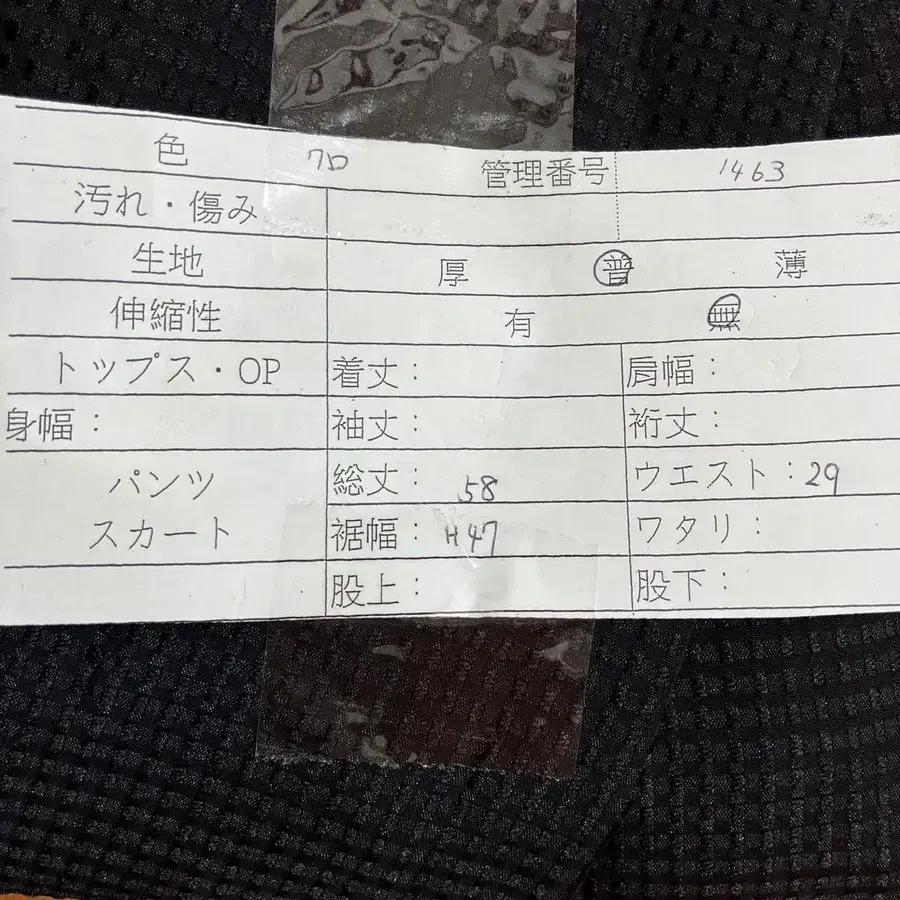 色 クロ 管理番号 1463
汚れ・傷み
生地 厚 普 薄
伸縮性 有 無
トップス・OP 着丈： 肩幅：
身幅： 袖丈： 裄丈：
パンツ 総丈： 58 ウエスト：29
スカート 裾幅： H47 ワタリ：
股上： 股下：